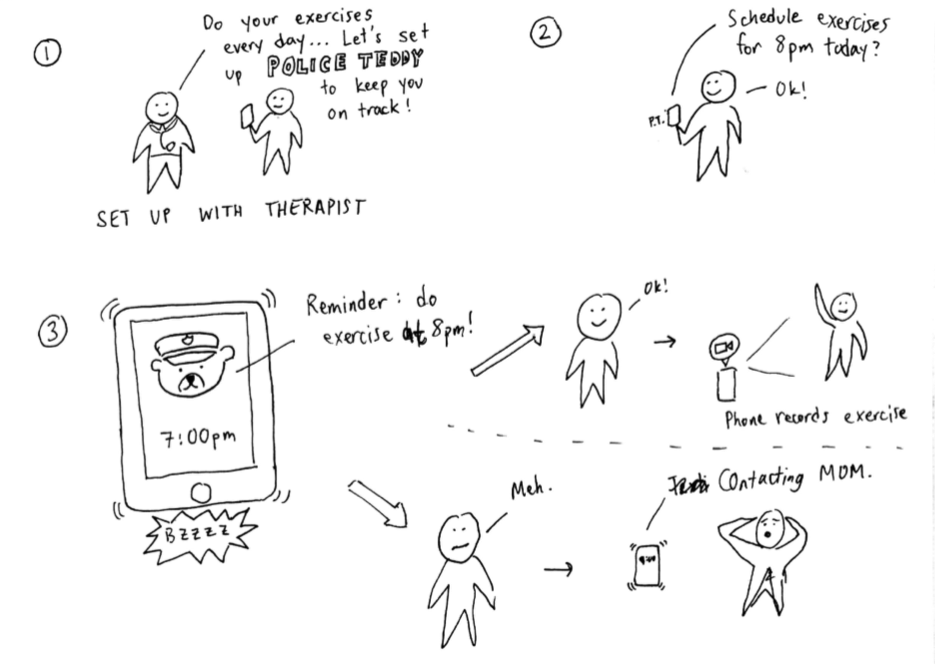 ①
Do your exercises
every day... Let's set
up POLICE TEDDY
to keep you
on track!
SET UP WITH THERAPIST
②
Schedule exercises
for 8pm today?
Ok!
P.T.
③
Reminder: do
exercise at 8pm!
7:00pm
BZZZZ
Ok!
Phone records exercise
Meh.
Contacting MOM.